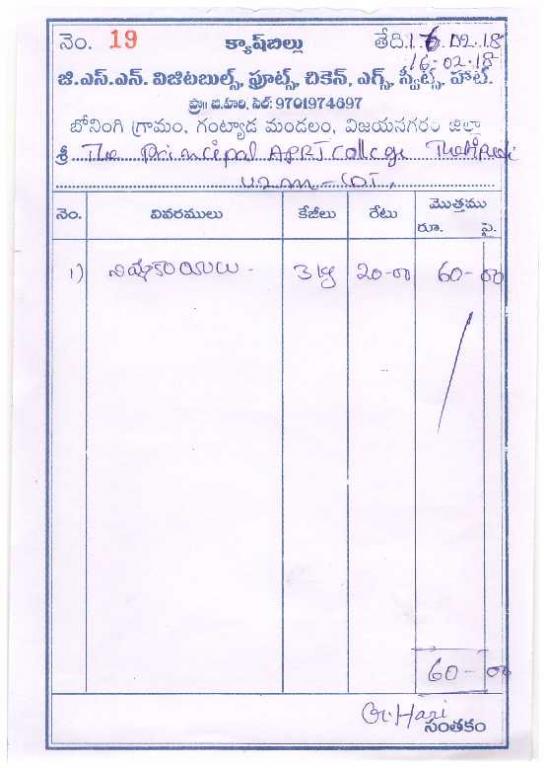 నెం. 19 క్యాష్‌బిల్లు తేది. 16.02.18
16.02.18
జి.ఎస్.ఎన్. విజిటబుల్స్, ఫ్రూట్స్, చికెన్, ఎగ్స్, స్వీట్స్, హాట్.
ప్రొ॥ జి.హరి, సెల్: 9701974697
బోనింగి గ్రామం, గంట్యాడ మండలం, విజయనగరం జిల్లా
శ్రీ The Principal APRJ College Thatipudi
నెం. వివరములు కేజీలు రేటు మొత్తము
రూ. పై.
1) 3 kg 20-00 60-00
60-00
G. Hari
సంతకం